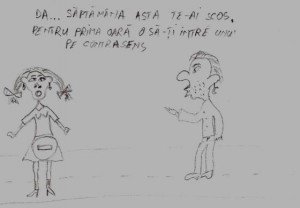 DA... SĂPTĂMÂNA ASTA TE-AI SCOS,
PENTRU PRIMA OARĂ O SĂ-ȚI INTRE UNU'
PE CONTRASENS